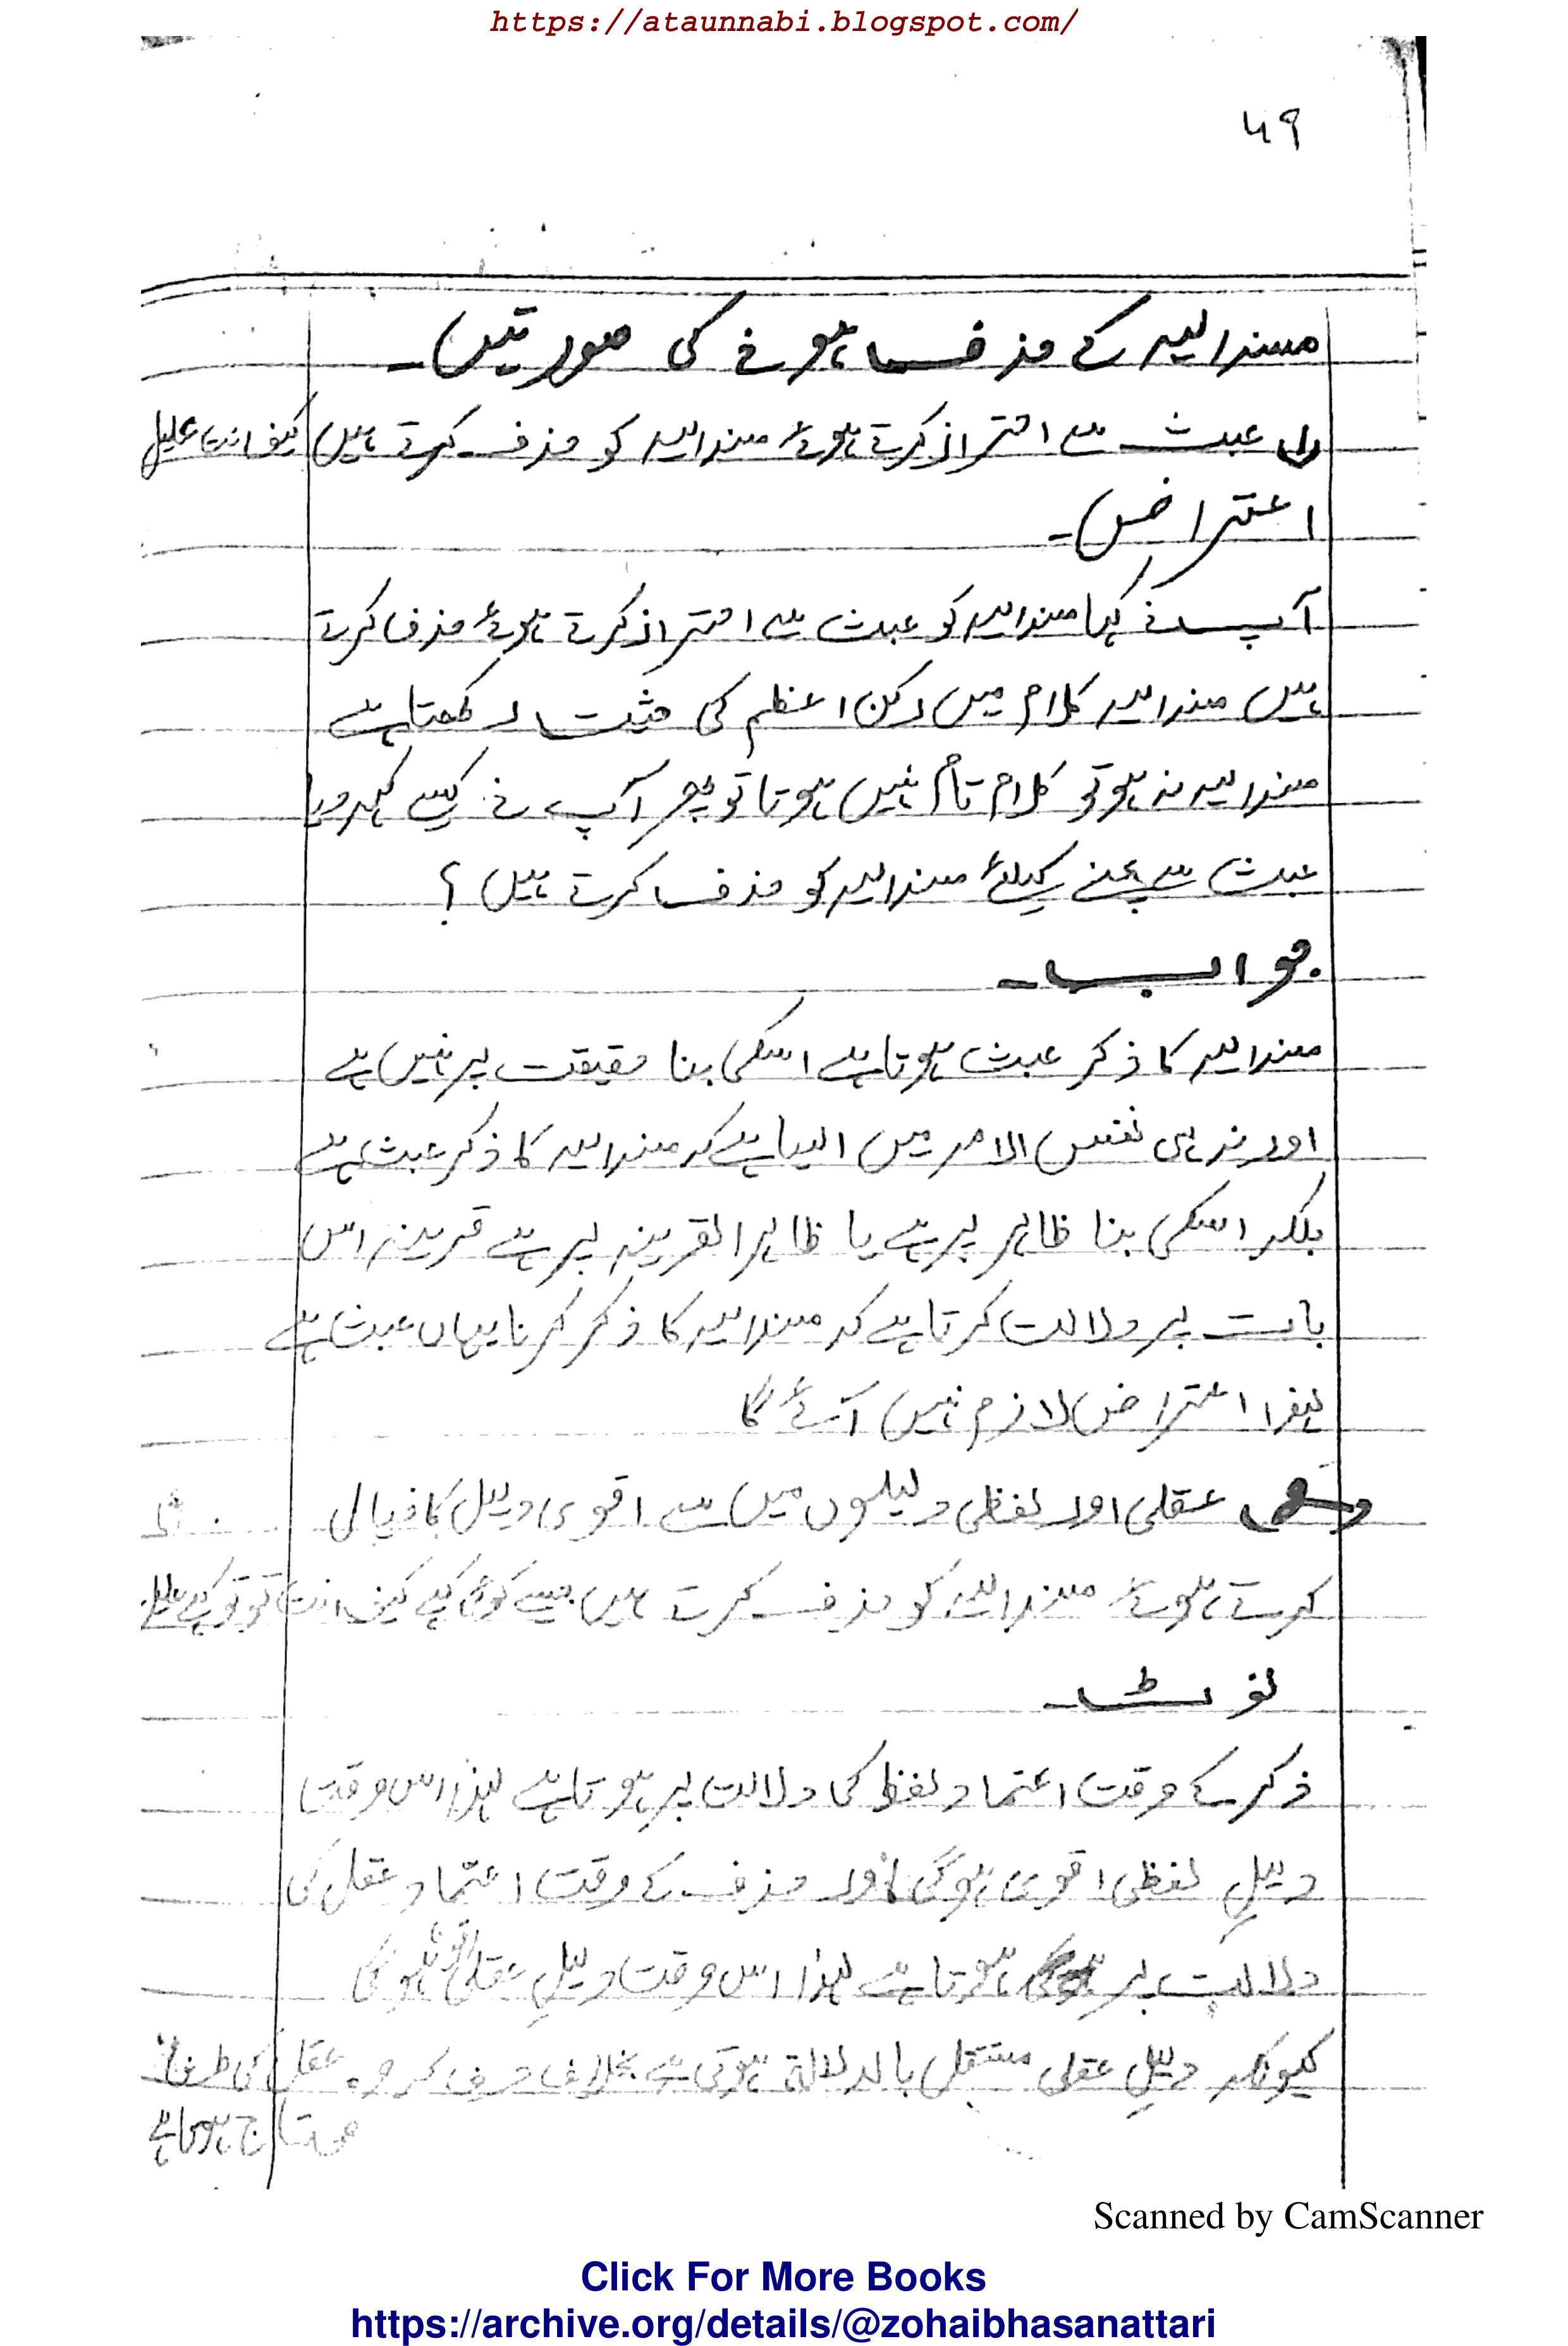 https://ataunnabi.blogspot.com/
۵۹
مسند الیہ کے حذف ہونے کی صورتیں۔
(۱) عبث سے احتراز کرتے ہوئے مسند الیہ کو حذف کرتے ہیں کیف انت علیل
اعتراض۔
آپ نے کہا مسند الیہ کو عبث سے احتراز کرتے ہوئے حذف کرتے
ہیں مسند الیہ کلام میں رکن اعظم کی حیثیت رکھتا ہے
مسند الیہ نہ ہو تو کلام تام نہیں ہوتا تو پھر آپ نے کیسے کہہ دیا
عبث سے بچنے کیلئے مسند الیہ کو حذف کرتے ہیں ؟
جواب۔
مسند الیہ کا ذکر عبث ہوتا ہے اسکی بنا حقیقت پر نہیں ہے
اور نہ ہی نفس الامر میں ایسا ہے کہ مسند الیہ کا ذکر عبث ہے
بلکہ اسکی بنا ظاہر پر ہے یا ظاہر القرینہ پر ہے قرینہ اس
بات پر دلالت کرتا ہے کہ مسند الیہ کا ذکر کرنا یہاں عبث ہے
لہذا اعتراض لازم نہیں آئے گا
عقلی اور لفظی دلیلوں میں سے اقوی دلیل کا خیال
کرتے ہوئے مسند الیہ کو حذف کرتے ہیں جیسے کوئی کہے کیف انت تو تو کہے علیل
نوٹ۔
ذکر کے وقت اعتماد لفظ کی دلالت پر ہوتا ہے لہذا اس وقت
دلیلِ لفظی اقوی ہوگی اور حذف کے وقت اعتماد عقل کی
دلالت پر ہوتا ہے لہذا اس وقت دلیلِ عقلی اقوی ہوگی
کیونکہ دلیلِ عقلی مستقل بالدلالۃ ہوتی ہے بخلاف حرف کہ وہ عقل کی طرف
محتاج ہوتا ہے
Scanned by CamScanner
Click For More Books
https://archive.org/details/@zohaibhasanattari